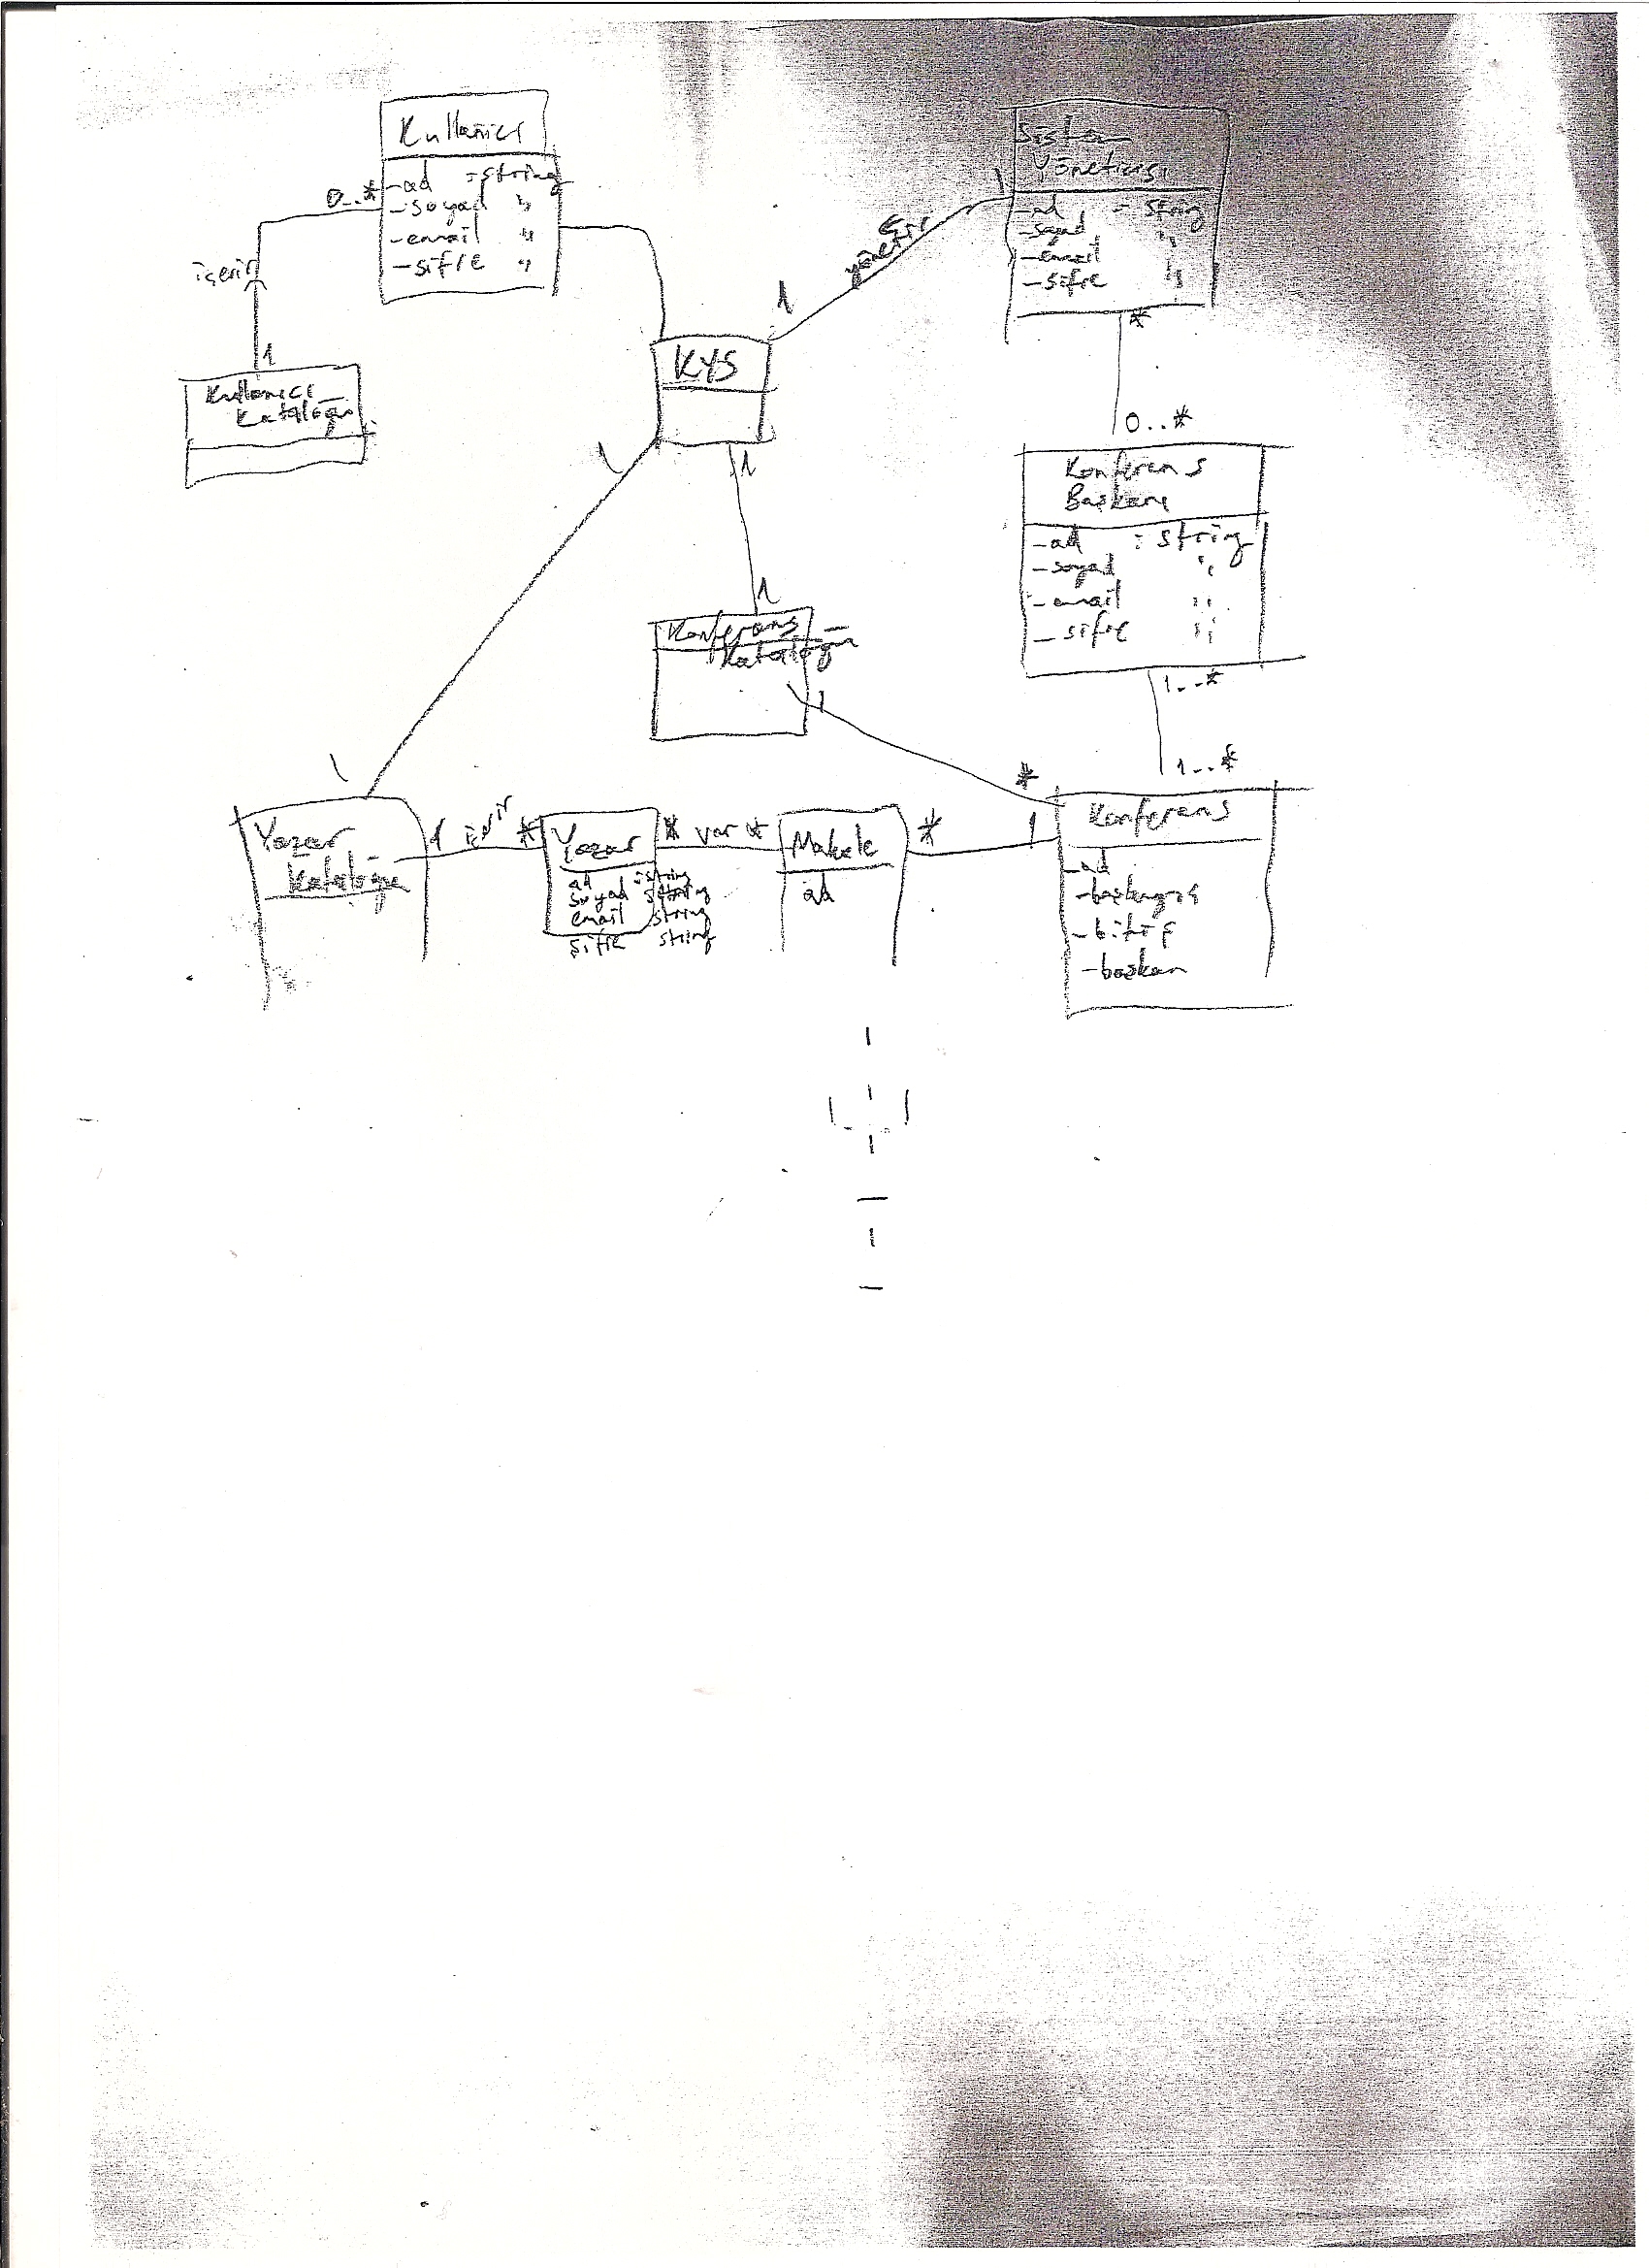 Kullanici
-ad : string
-soyad "
-email "
-sifre "
0..*
içerir
1
Kullanici_
Katalogu
KYS
1
yönetir
1
Sistem
Yöneticisi
-ad - string
-soyad "
-email
-sifre "
*
0..*
Konferans
Başkanı
-ad : string
-soyad "
-email "
-sifre "
1..*
1..*
1
1
1
Konferans_
Katalogu
1
*
1
Yazar_
Katalogu
1
*
Yazar
ad :string
soyad string
email string
sifre string
* var *
Makale
ad
*
1
Konferans
-ad
-baslangıc
-bitiş
-başkan